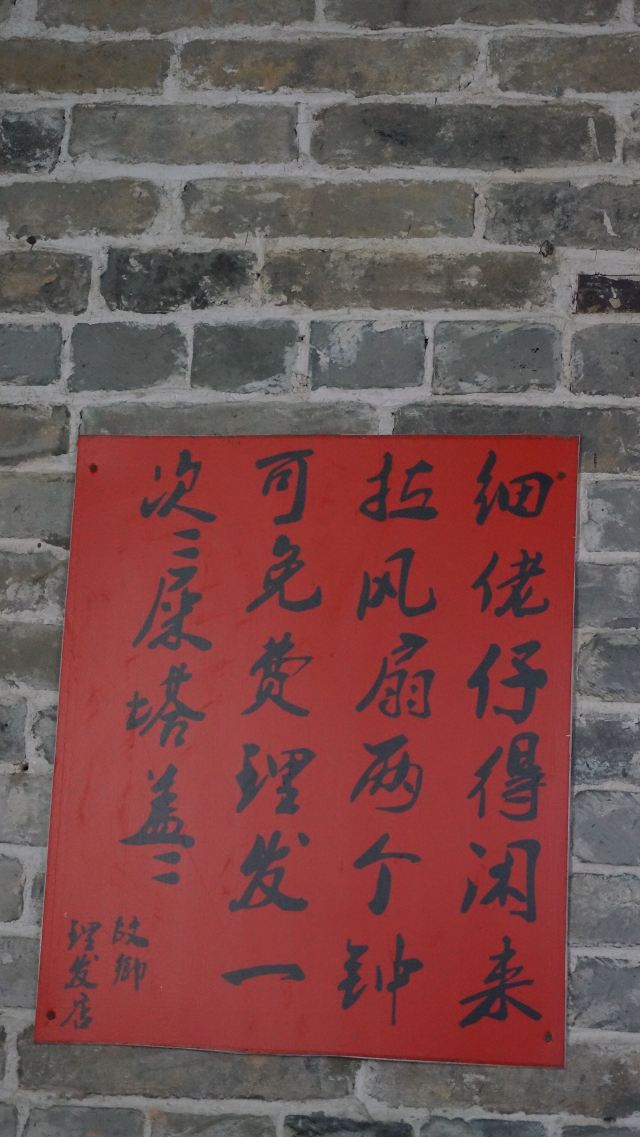 细佬仔得闲来
拉风扇两个钟
可免费理发一
次“屎塔盖”
故鄉
理发店